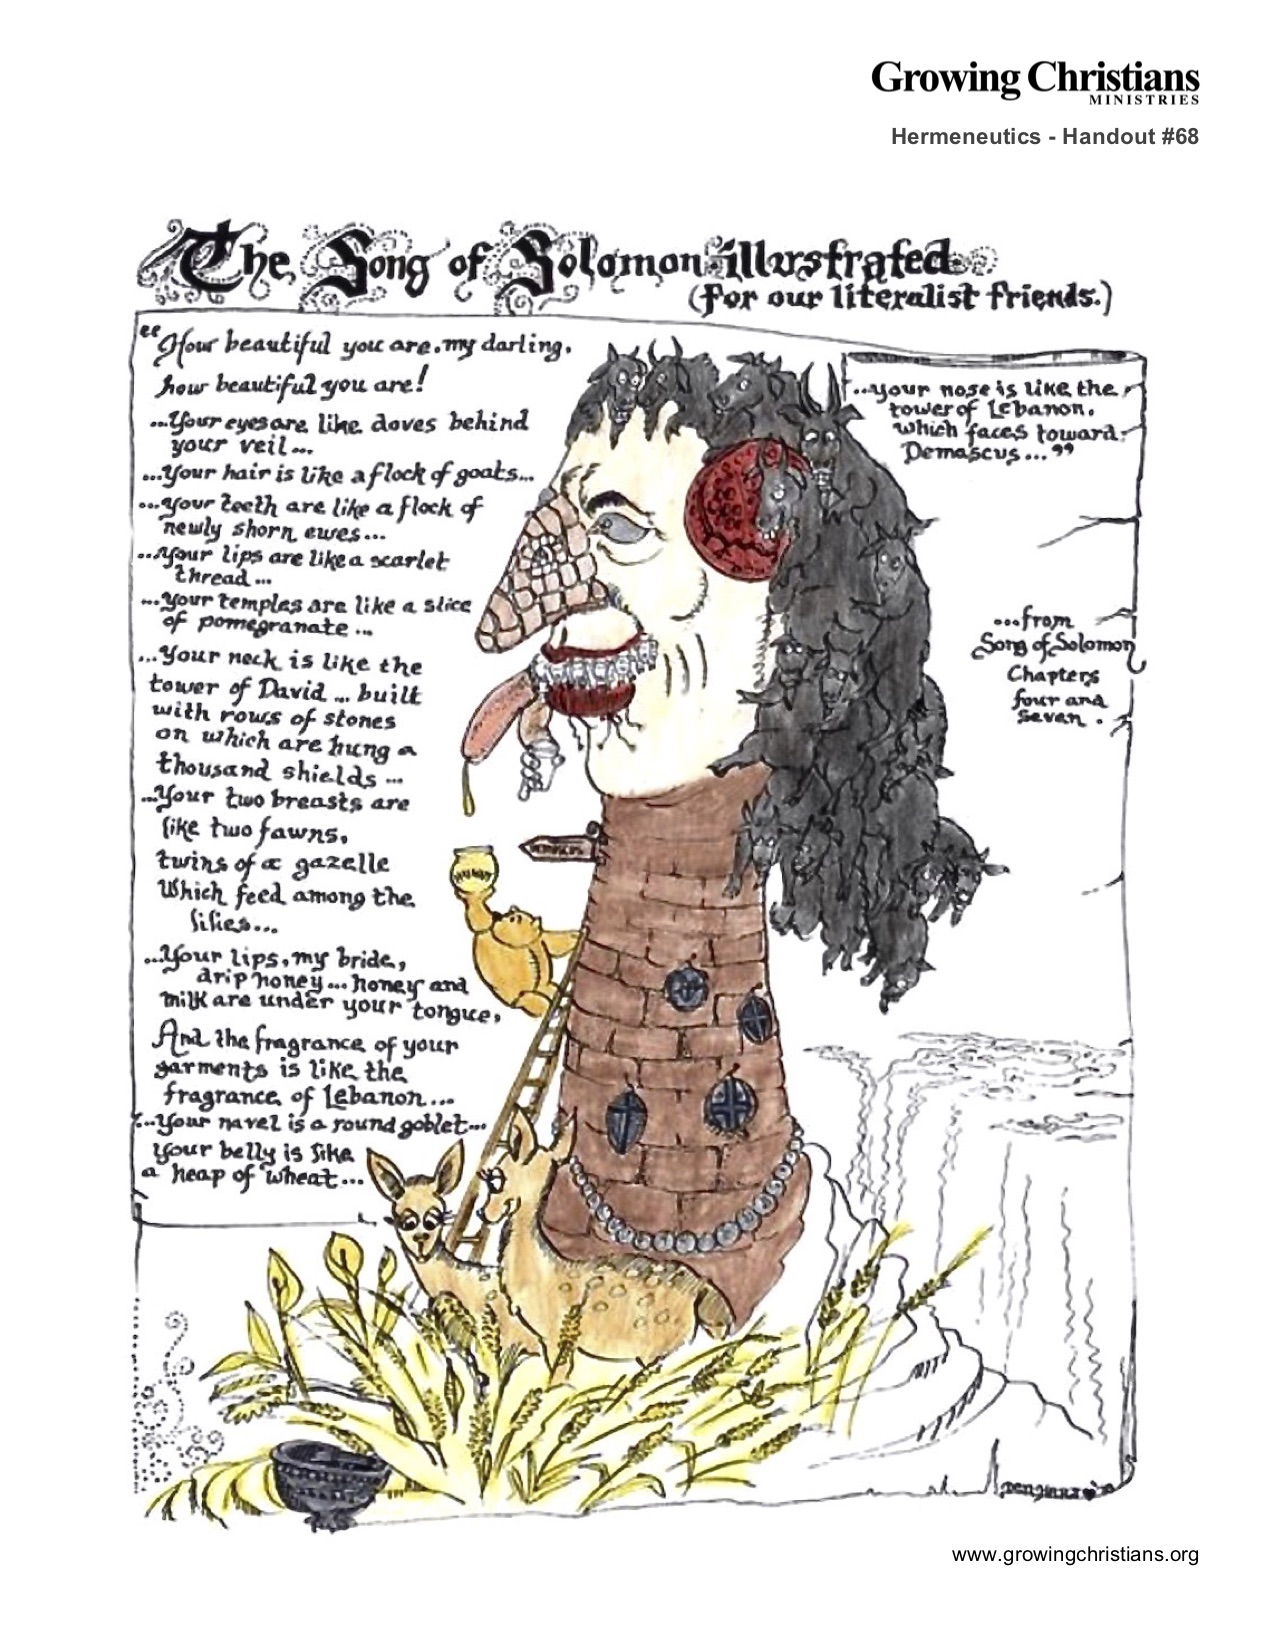 Growing Christians
MINISTRIES
Hermeneutics - Handout #68
The Song of Solomon illustrated
(for our literalist friends.)
"How beautiful you are, my darling,
how beautiful you are!
...Your eyes are like doves behind
your veil...
...Your hair is like a flock of goats...
...Your teeth are like a flock of
newly shorn ewes...
...Your lips are like a scarlet
thread...
...Your temples are like a slice
of pomegranate...
...Your neck is like the
tower of David... built
with rows of stones
on which are hung a
thousand shields...
...Your two breasts are
like two fawns,
twins of a gazelle
Which feed among the
lilies...
...Your lips, my bride,
drip honey... honey and
milk are under your tongue,
And the fragrance of your
garments is like the
fragrance of Lebanon...
...Your navel is a round goblet...
Your belly is like
a heap of wheat...
...your nose is like the
tower of Lebanon,
which faces toward
Demascus..."
...from
Song of Solomon
Chapters
four and
seven.
HUNNY
www.growingchristians.org